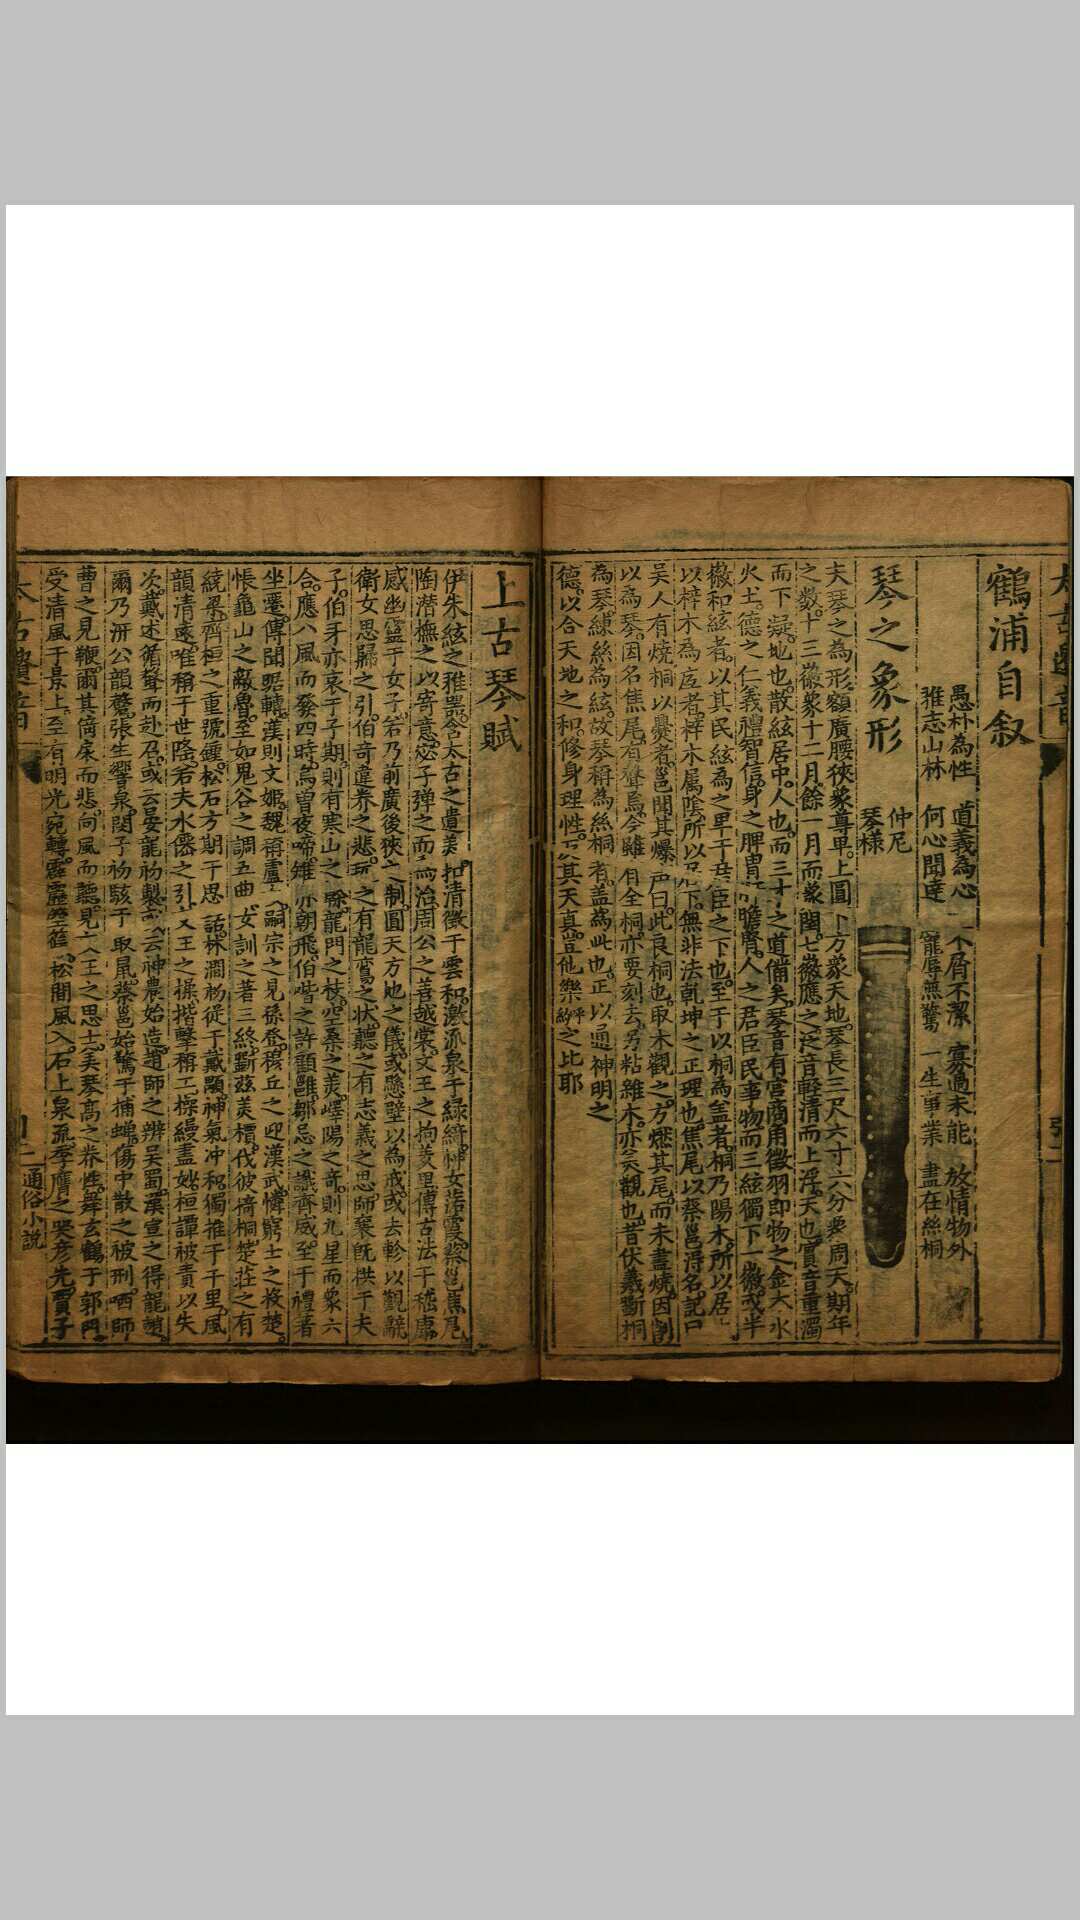 鶴浦自叙
愚朴為性 道義為心 不屑不潔 寡過未能 放情物外
雅志山林 何心聞達 寵辱無驚 一生事業 盡在絲桐
琴之象形
仲尼
琴樣
夫琴之為形額廣腰狹象尊卑上圓下方象天地琴長三尺六寸六分象周天期年
之數十三徽象十二月餘一月而象閏七徽應之泛音輕清而上浮天也實音重濁
而下凝地也散絃居中人也而三才之道備矣琴音有宮商角徵羽即物之金木水
火土德之仁義禮智信身之脾胃肝膽腎人之君臣民事物而三絃獨下一徽或半
徽和絃者以其民絃為之卑于君臣之下也至于以桐為盖者桐乃陽木所以居上
以梓木為底者梓木属陰所以居下無非法乾坤之正理也焦尾以蔡邕淂名記曰
吴人有燒桐以㸑者邕聞其爆声曰此良桐也取木觀之方燃其尾而未盡燒因割
以為琴因名焦尾有聲焉今雖有全桐亦要刻去另粘雜木亦美觀也昔伏羲斷桐
為琴䋲絲為絃故琴稱為絲桐者盖為此也正以通神明之
德以合天地之和修身理性反其天真豈他樂之比耶
上古琴賦
伊朱絃之雅噐含太古之遺美扣清徵于雲和激流泉于緑綺神女落霞蔡邕焦尾
陶潜撫之以寄意宓子弹之而為治周公之善越裳文王之拘羑里傳古法于嵇康
感幽靈于女子若乃前廣後狹之制圓天方地之儀或懸壁以為戒或去軫以觀辭
衛女思歸之引伯奇違养之悲玩之有龍鸞之状聽之有志義之思師襄旣拱于夫
子伯牙亦哀于子期則有寒山之龍門之枝空桑之美嶧陽之奇則九星而象六
合應八風而發四時烏曾夜啼雉亦朝飛伯喈之許顧雝鄒忌之諷齊威至于禮著
坐遷傳聞晤轉漢則文姬魏稱盧女嗣宗之見孫登穆丘之迎漢武憐窮士之枚楚
帳龜山之敵魯至如鬼谷之調五曲女訓之著三終斷茲美檟伐彼椅桐楚莊之有
繞梁齊桓之重號鍾松石方期于思話林澗初從于戴顒神氣冲和獨推于千里風
韻清遠唯稱于世隆若夫水僊之引文王之操揩擊稱工操縵盡妙桓譚被責以失
次戴述循聲而赴召或云晏龍初製或云神農始造趙師之辨吴蜀漢宣之得龍趙
爾乃汧公韻磬張生響泉閔子初駭于取鼠蔡邕始驚于捕蟬傷中散之被刑哂師
曹之見鞭爾其倚床而悲向風而聽見文王之思士美琴高之养性舞玄鶴于郭門
受清風于景上至有明光宛轉霹靂箜篌松間風入石上泉流季鷹之哭彦先賈子
太古遺音
通俗小説